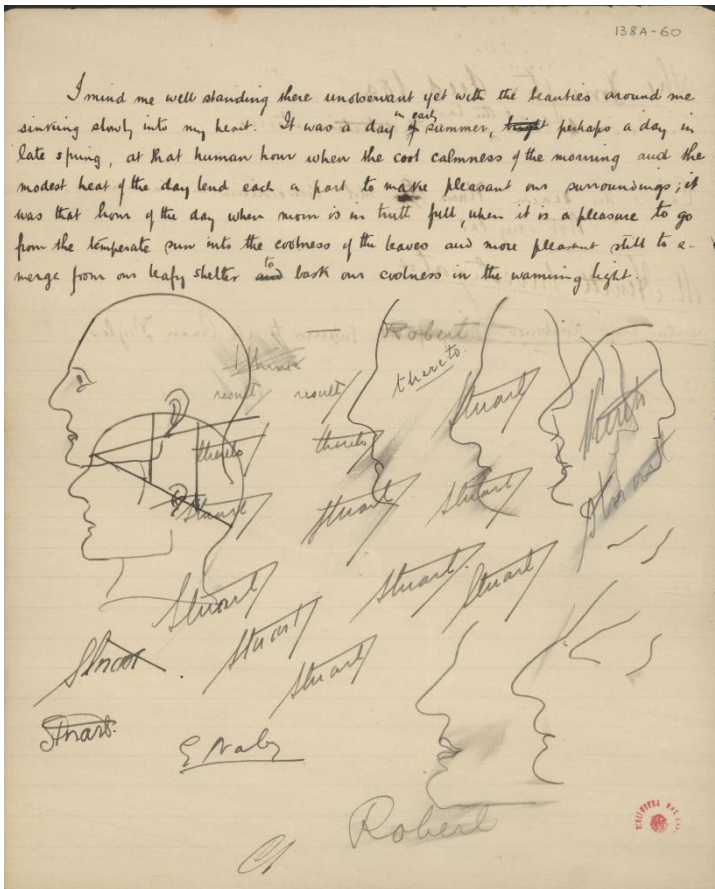 138A-60
I mind me well standing there unobservant yet with the beauties around me
sinking slowly into my heart. It was a day in early summer, perhaps a day in
late spring, at that human hour when the cool calmness of the morning and the
modest heat of the day lend each a part to make pleasant our surroundings; it
was that hour of the day when morn is in truth full, when it is a pleasure to go
from the temperate sun into the coolness of the leaves and more pleasant still to e-
merge from our leafy shelter to bask our coolness in the warming light.
Robert
thereto
result result
Stuart
thereto thereto
thereto
Stuart Stuart Stuart
Stuart
Stuart Stuart Stuart
Stuart
Stuart
Stuart
Stuart
Robert